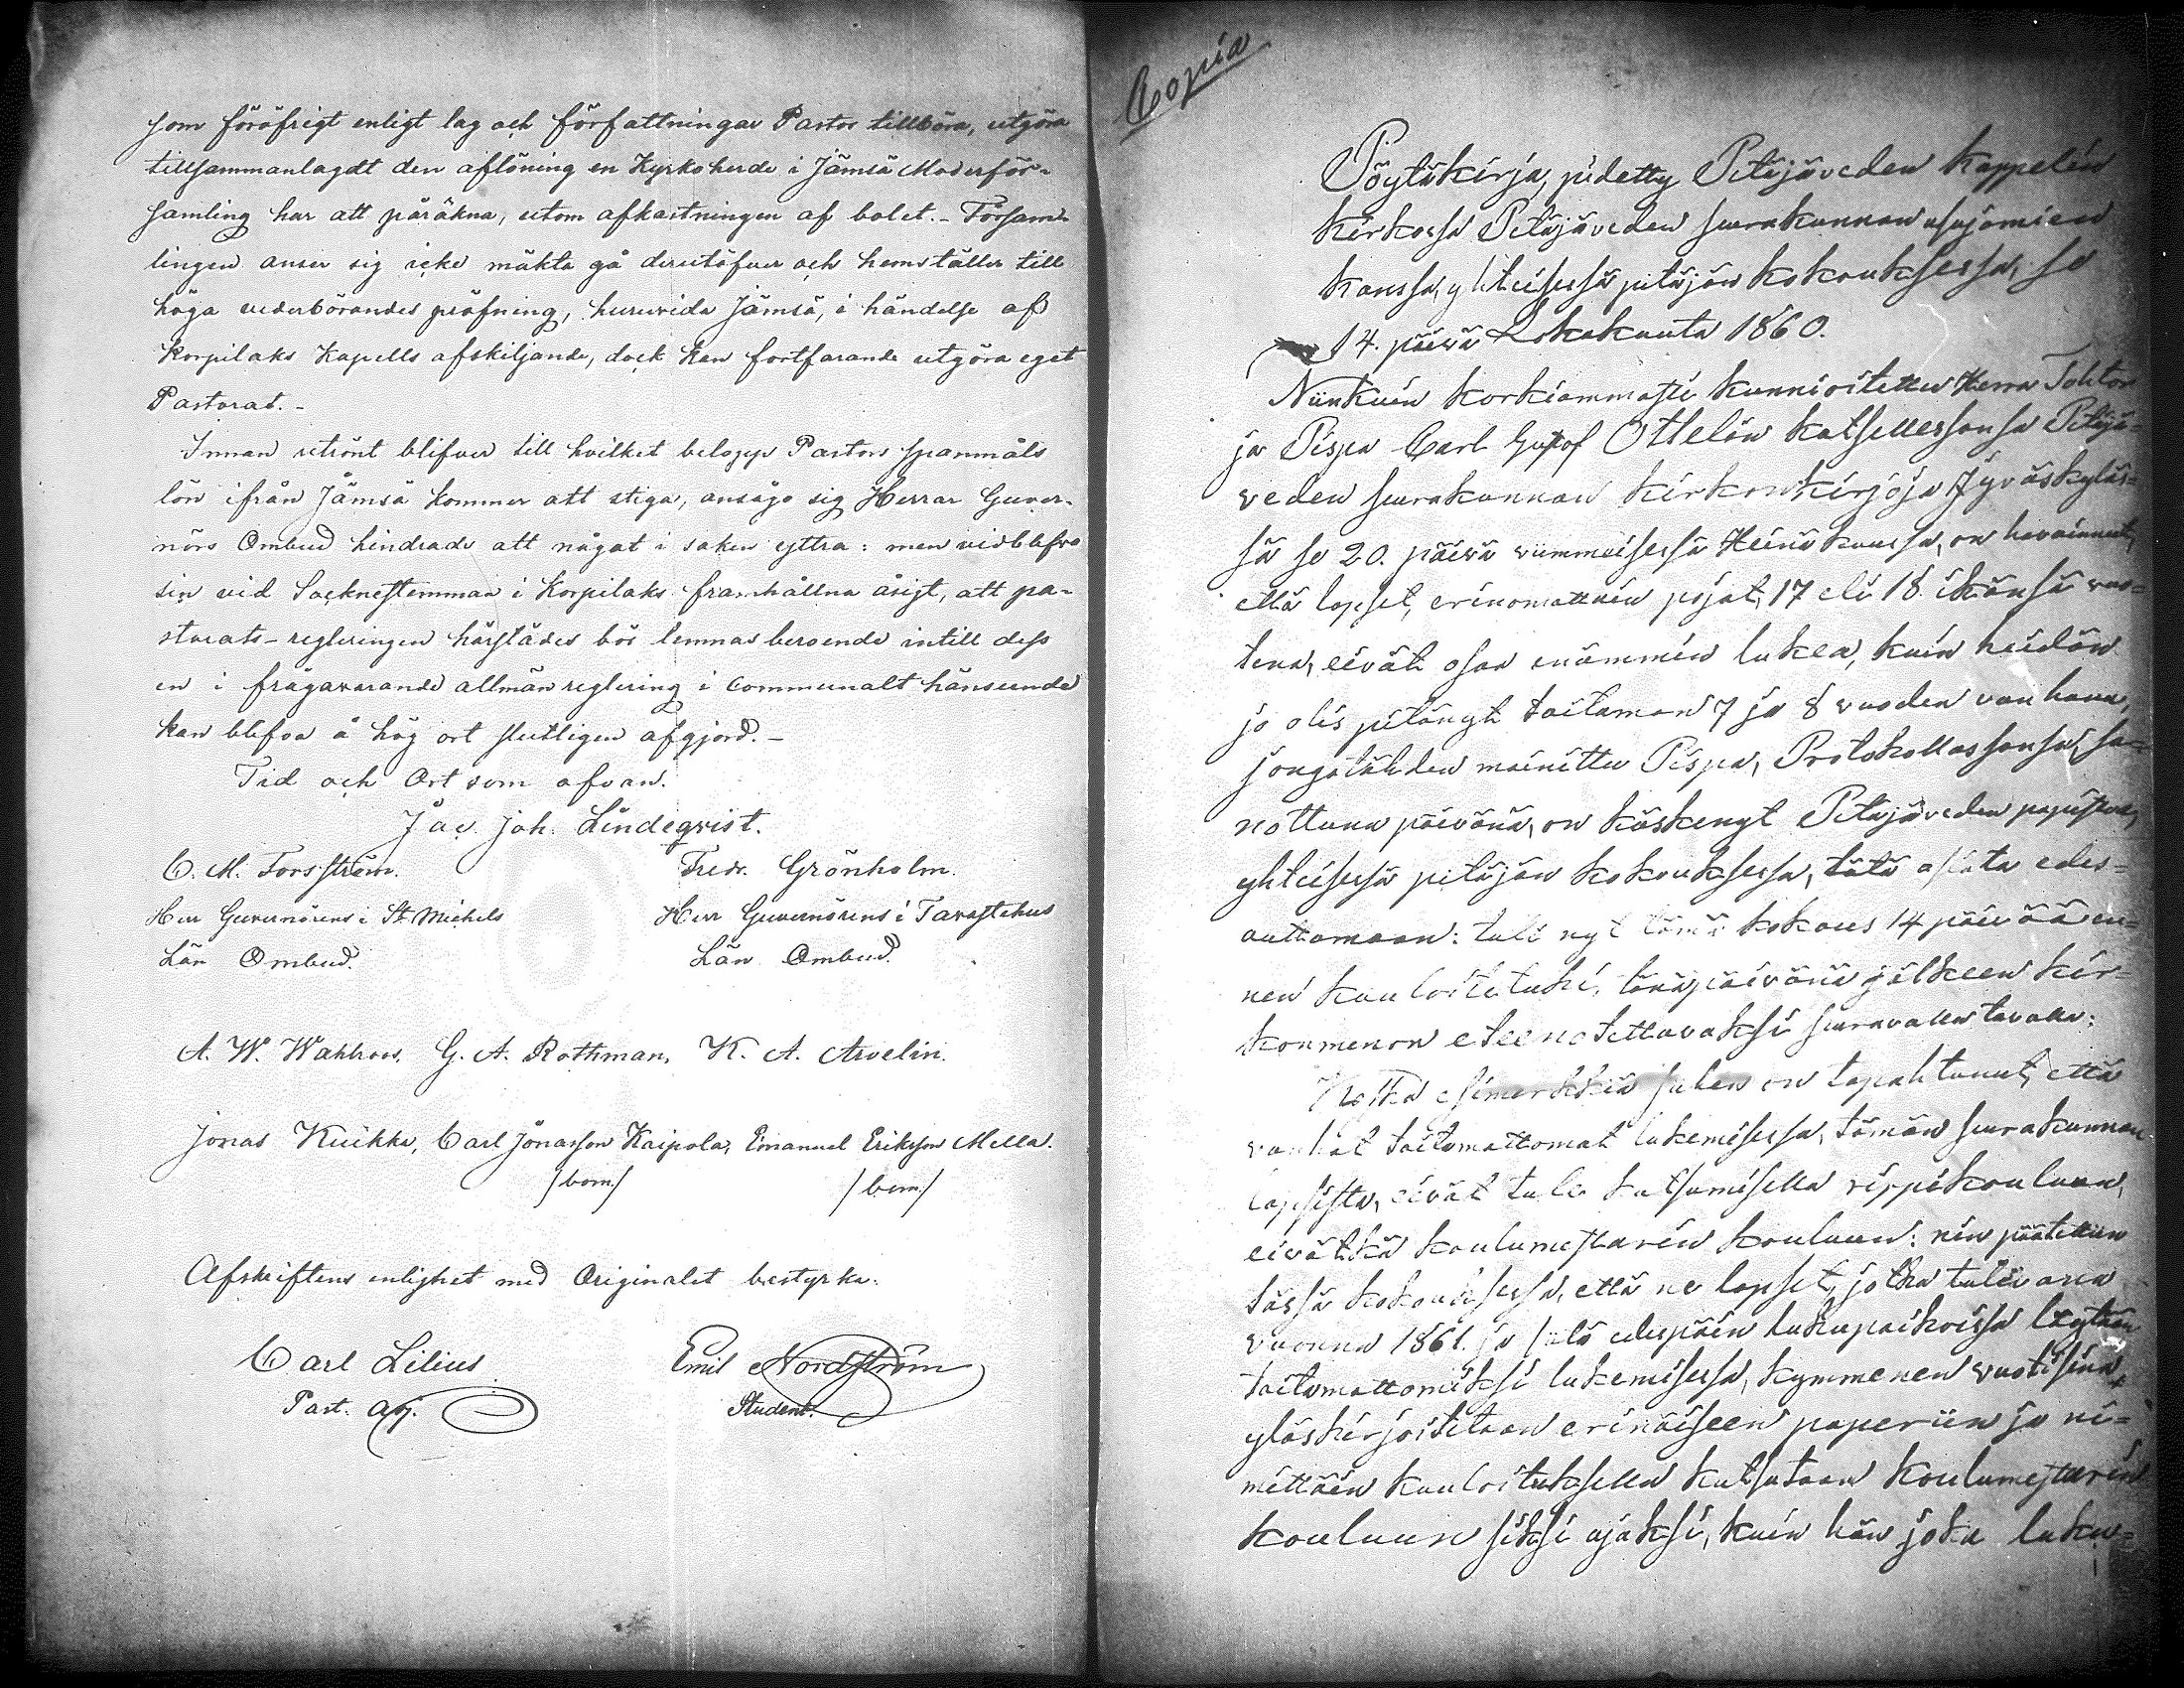 som föröfrigt enligt lag och författningar Pastor tillböra, utgöra
tillsammanlagdt den aflöning en Kyrkoherde i Jämsä Moderför-
samling har att påräkna, utom afkastningen af bolet. - Försam-
lingen anser sig icke mäkta gå derutöfver och hemställer till
höga vederbörandes pröfning, huruvida Jämsä, i händelse af
Korpilaks Kapells afskiljande, dock kan fortfarande utgöra eget
Pastorat. -
Innan utrönt blifver till hvilket belopp Pastors spanmåls
lön ifrån Jämsä kommer att stiga, ansågo sig Herrar Guver-
nörs Ombud hindrade att något i saken yttra: men vidblefvo
sin vid Sockenstemman i Korpilaks framhållna åsigt, att pa-
storats-regleringen härstädes bör lemnas beroende intill dess
en i frågavarande allmän reglering i communalt hänseende
kan blifva å hög ort slutligen afgjord. -
Tid och Ort som ofvan.
Jac. Joh. Lindeqvist.
C. M. Forsström. Fredr. Grönholm.
Herr Guvernörens i St Michels Herr Guvernörens i Tavastehus
Län Ombud. Län Ombud.
A. W. Wahlroos, G. A. Rothman, K. A. Arvelin.
Jonas Kuikka, Carl Jonasson Kaipola, Emanuel Eriksson Mella.
/bom./ /bom./
Afskriftens enlighet med Originalet bestyrka:
Carl Lilius Emil Nordström
Past. adj. Student.
Copia
Pöytäkirja, pidetty Petäjäveden Kappelin
kirkossa Petäjäveden seurakunnan asujamien
kanssa, yhteisessä pitäjän kokouksessa, se
14. päivä Lokakuuta 1860.
Niinkuin korkiammasti kunnioitettu Herra Tohtor
ja Pispa Carl Gustof Ottelin katsellessansa Petäjä-
veden seurakunnan kirkonkirjoja Jyväskyläs-
sä se 20. päivä viimmeisessä Heinäkuussa, on havainnut,
että lapset, erinomattain pojat, 17 eli 18 ikänsä vuo-
tena, eivät osaa enämmin lukea, kuin heidän
jo olis pitänyt taitaman 7 ja 8 vuoden vanhana,
jongatähden mainittu Pispa, Protokollassansa, sa-
nottuna päivänä, on käskenyt Petäjäveden papistoa,
yhteisessä pitäjän kokouksessa, tätä asiata edes-
auttamaan: tuli nyt tämä kokous 14 päivää en-
nen kuuloitetuksi, tänäpäivänä jälkeen kir-
konmenon eteenotettavaksi seuravalla tavalla:
Koska esimerkkiä siihen on tapahtunut, että
vanhat taitamattomat lukemisessa, tämän seurakunnan
lapsista, eivät tule kutsumisella rippikouluun,
eivätkä koulumestarin kouluun: niin päätettiin
tässä kokouksessa, että ne lapset, jotka tulevana
vuonna 1861. ja siitä edespäin lukupaikoissa löytään
taitamattomiksi lukemisessa, kymmenen vuotisina,
ylöskirjoitetaan erinäiseen paperiin ja ni-
mittäin kuuloituksella kutsutaan koulumestarin
kouluun siksi ajaksi, kuin hän joka luku-